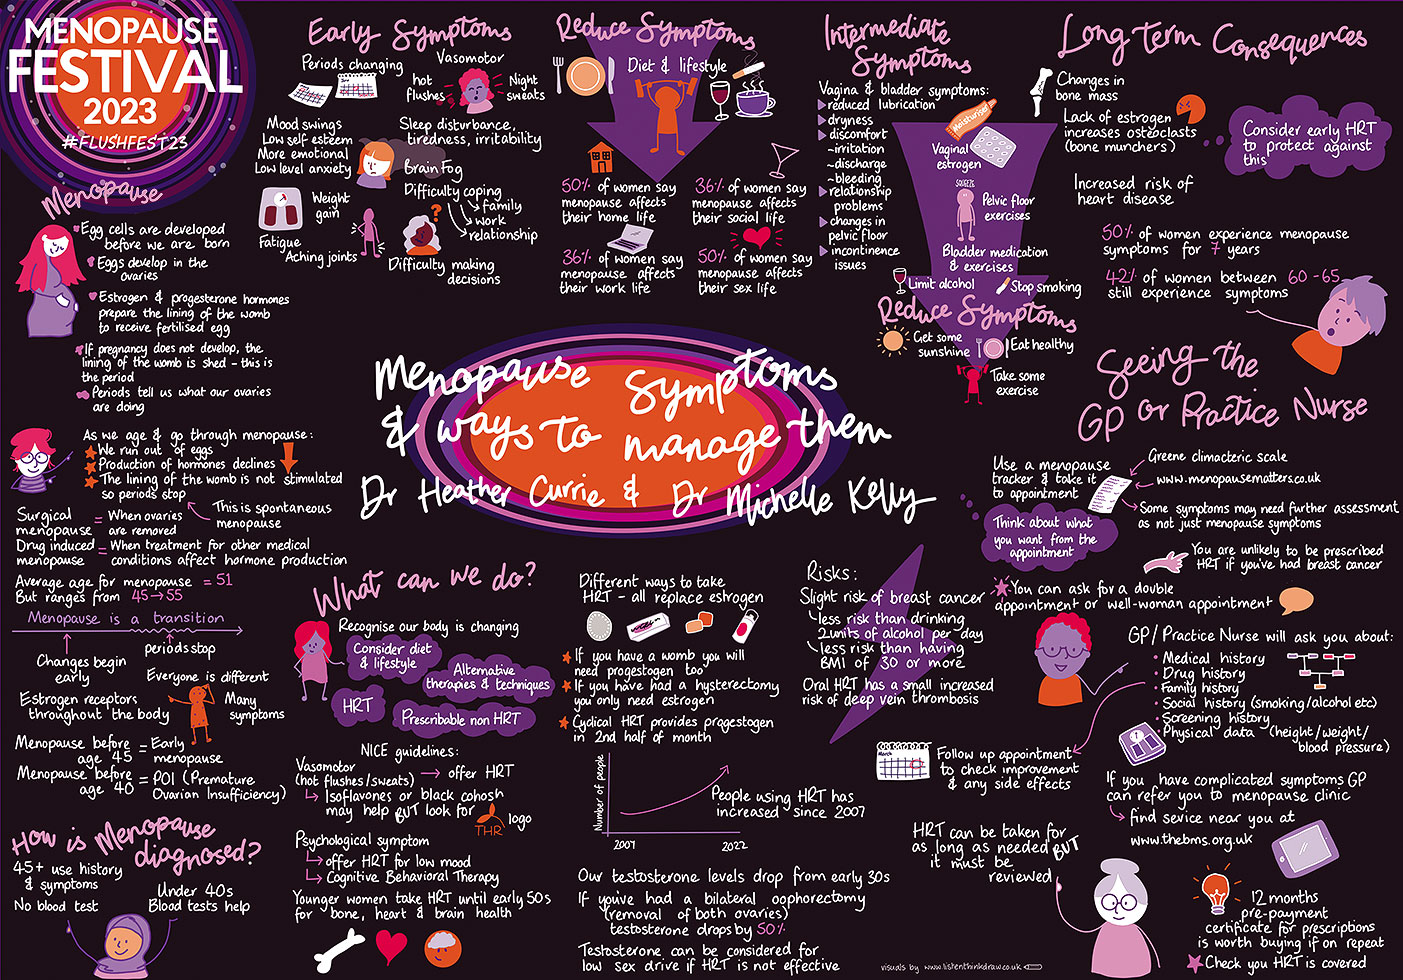 MENOPAUSE
FESTIVAL
2023
#FLUSHFEST23
Menopause
Egg cells are developed
before we are born
Eggs develop in the
ovaries
Estrogen & progesterone hormones
prepare the lining of the womb
to receive fertilised egg
If pregnancy does not develop, the
lining of the womb is shed - this is
the period
Periods tell us what our ovaries
are doing
As we age & go through menopause:
We run out of eggs
Production of hormones declines
The lining of the womb is not stimulated
so periods stop
This is spontaneous
menopause
Surgical
menopause
= When ovaries
are removed
Drug induced
menopause
= When treatment for other medical
conditions affect hormone production
Average age for menopause = 51
But ranges from 45→55
Menopause is a transition
periods stop
Changes begin
early
Everyone is different
Estrogen receptors
throughout the body
Many
symptoms
Menopause before
age 45
= Early
menopause
Menopause before
age 40
= POI (Premature
Ovarian Insufficiency)
How is Menopause
diagnosed?
45+ use history
& symptoms
No blood test
Under 40s
Blood tests help
Early Symptoms
Periods changing
Vasomotor
hot
flushes
Night
sweats
Mood swings
Low self esteem
More emotional
Low level anxiety
Sleep disturbance,
tiredness, irritability
Brain Fog
Weight
gain
Difficulty coping
family
work
relationship
Fatigue
Aching joints
Difficulty making
decisions
Reduce Symptoms
Diet & lifestyle
50% of women say
menopause affects
their home life
36% of women say
menopause affects
their social life
36% of women say
menopause affects
their work life
50% of women say
menopause affects
their sex life
Intermediate
Symptoms
Vagina & bladder symptoms:
reduced lubrication
dryness
discomfort
~irritation
~discharge
~bleeding
relationship
problems
changes in
pelvic floor
incontinence
issues
Moisturiser
Vaginal
estrogen
SQUEEZE
Pelvic floor
exercises
Bladder medication
& exercises
Limit alcohol
Stop smoking
Reduce Symptoms
Get some
sunshine
Eat healthy
Take some
exercise
Long term Consequences
Changes in
bone mass
Lack of estrogen
increases osteoclasts
(bone munchers)
Consider early HRT
to protect against
this
Increased risk of
heart disease
50% of women experience menopause
symptoms for 7 years
42% of women between 60-65
still experience symptoms
Menopause Symptoms
& ways to manage them
Dr Heather Currie & Dr Michelle Kelly
What can we do?
Recognise our body is changing
Consider diet
& lifestyle
Alternative
therapies & techniques
HRT
Prescribable non HRT
NICE guidelines:
Vasomotor
(hot flushes/sweats) → offer HRT
Isoflavones or black cohosh
may help BUT look for
THR
logo
Psychological symptom
offer HRT for low mood
Cognitive Behavioral Therapy
Younger women take HRT until early 50s
for bone, heart & brain health
Different ways to take
HRT - all replace estrogen
If you have a womb you will
need progestogen too
If you have had a hysterectomy
you only need estrogen
Cyclical HRT provides progestogen
in 2nd half of month
Number of people
People using HRT has
increased since 2007
2007
2022
Our testosterone levels drop from early 30s
If you've had a bilateral oophorectomy
(removal of both ovaries)
testosterone drops by 50%
Testosterone can be considered for
low sex drive if HRT is not effective
Risks:
Slight risk of breast cancer
less risk than drinking
2units of alcohol per day
less risk than having
BMI of 30 or more
Oral HRT has a small increased
risk of deep vein thrombosis
Seeing the
GP or Practice Nurse
Use a menopause
tracker & take it
to appointment
Greene climacteric scale
www.menopausematters.co.uk
Some symptoms may need further assessment
as not just menopause symptoms
Think about what
you want from the
appointment
You are unlikely to be prescribed
HRT if you've had breast cancer
You can ask for a double
appointment or well-woman appointment
GP/Practice Nurse will ask you about:
Medical history
Drug history
Family history
Social history (smoking/alcohol etc)
Screening history
Physical data - (height/weight/
blood pressure)
March
Follow up appointment
to check improvement
& any side effects
If you have complicated symptoms GP
can refer you to menopause clinic
find sevice near you at
www.thebms.org.uk
HRT can be taken for
as long as needed BUT
it must be
reviewed
12 months
pre-payment
certificate for prescriptions
is worth buying if on repeat
Check you HRT is covered
visuals by www.listenthinkdraw.co.uk